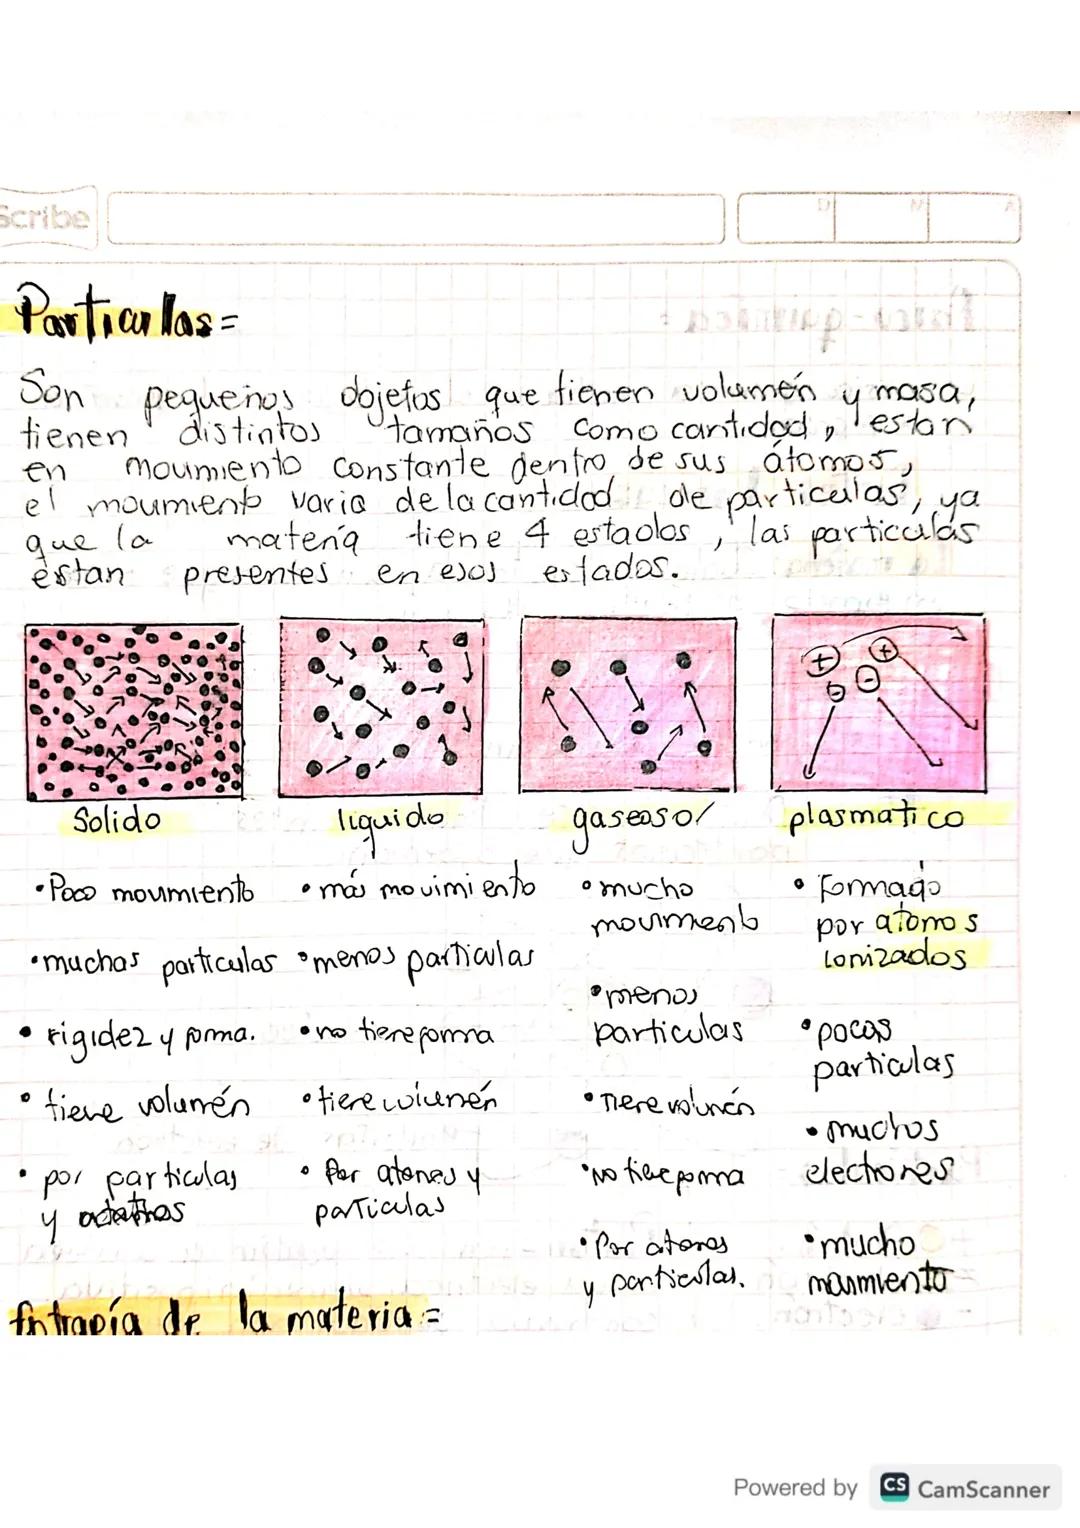 Scribe
D M A
Particulas=
Son pequeños objetos que tienen volumén y masa,
tienen distintos tamaños como cantidad, estan
en movimiento constante dentro de sus átomos,
el movimiento varia de la cantidad de particulas, ya
que la materia tiene 4 estados, las particulás
estan presentes en esos estados.
+ + - -
Solido
liquido
gaseoso/
plasmatico
•Poco movimiento
•muchas particulas
•rigidez y forma.
•tiene volumén
•por particulas
y
•más movimiento
•menos particulas
•no tiene forma
•tiene volumén
•Por atomos y
particulas
•mucho
movimiento
•menos
particulas
•Tiene volumén
•No tiene forma
•Por atomos
y particulas.
•Formado
por atomos
ionizados
•pocas
particulas
•muchos
electrones
•mucho
movimiento
Entropía de la materia:=
Powered by CS CamScanner